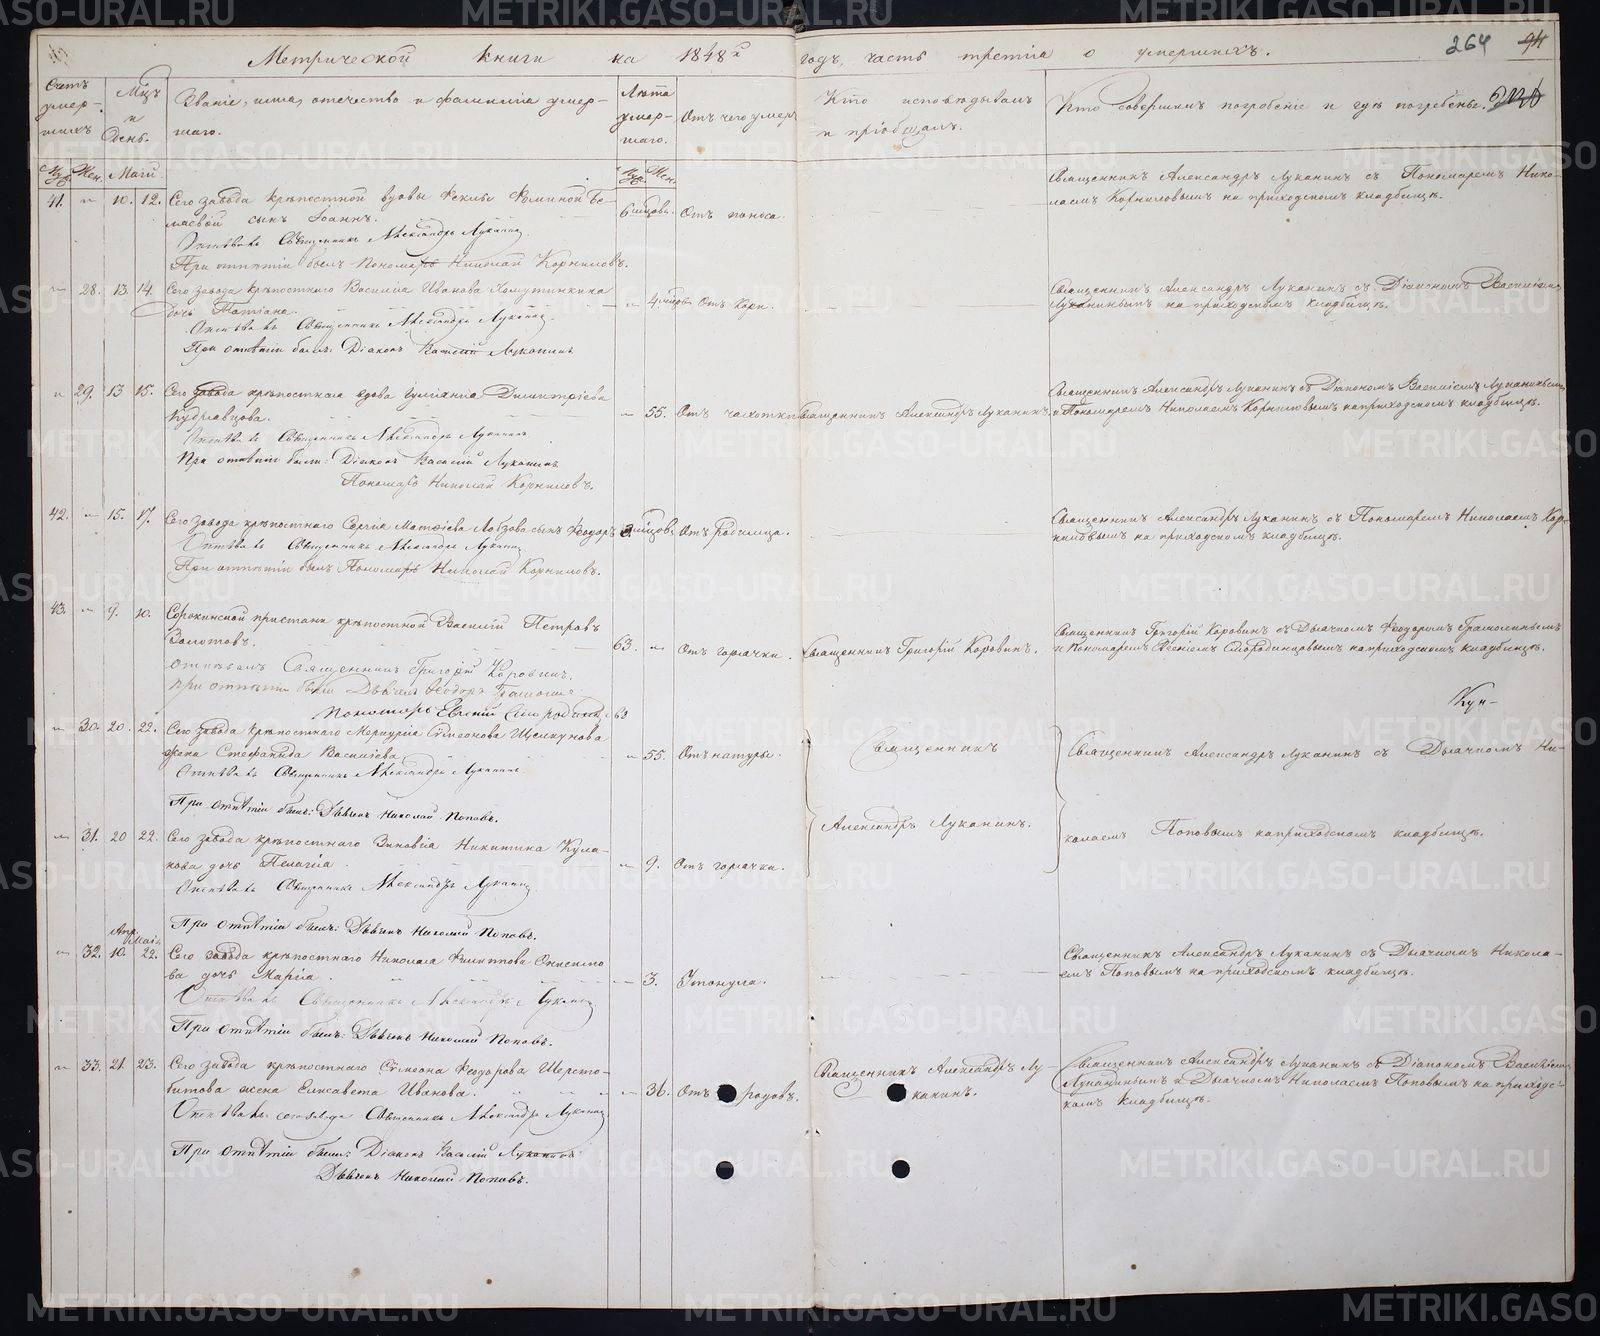 Метрической книги на 1848й годъ, часть третiя о умершихъ.
264
Счетъ умер-шихъ
Мцъ и День.
Званiе, имя, отечество и фамилiя умер-
шаго.
Лѣта умер-шаго.
Отъ чего умеръ
Кто исповѣдывалъ
и прiобщалъ.
Кто совершалъ погребенiе и гдѣ погребены.
Муж. Жен. Маiй. Муж. Жен.
41. " 10. 12. Сего завода крѣпостной вдовы Феклы Фоминой Бе-
ляевой сынъ Iоаннъ. 6 мцовъ. Отъ поноса.
Священникъ Александръ Луканинъ съ Пономаремъ Нико-
лаемъ Корниловымъ на приходскомъ кладбищѣ.
Отпѣвалъ Священникъ Александръ Луканинъ
При отпѣтiи былъ Пономарь Николай Корниловъ.
" 28. 13. 14. Сего завода крѣпостнаго Василiя Иванова Хомутинкина
дочь Татiана. " 4. мцовъ Отъ кори.
Священникъ Александръ Луканинъ съ Дiакономъ Василiемъ
Луканинымъ на приходскомъ кладбищѣ.
Отпѣвалъ Священникъ Александръ Луканинъ
При отпѣтiи былъ: Дiаконъ Василiй Луканинъ
" 29. 13 15. Сего завода крѣпостная вдова Iулiанiя Димитрiева
Кудрявцова. " 55. Отъ чахотки Священникъ Александръ Луканинъ.
Священникъ Александръ Луканинъ съ Дiакономъ Василiемъ Луканинымъ
и Пономаремъ Николаемъ Корниловымъ на приходскомъ кладбищѣ.
Отпѣвалъ Священникъ Александръ Луканинъ
При отпѣтiи были: Дiаконъ Василiй Луканинъ
Пономарь Николай Корниловъ.
42. " 15. 17. Сего завода крѣпостнаго Сергiя Матфiева Лобзова сынъ Феодоръ мцовъ Отъ родимца.
Священникъ Александръ Луканинъ съ Пономаремъ Николаемъ Кор-
ниловымъ на приходскомъ кладбищѣ.
Отпѣвалъ Священникъ Александръ Луканинъ
При отпѣтiи былъ Пономарь Николай Корниловъ.
43. " 9. 10. Сорокинской пристани крѣпостной Василiй Петровъ
Золотовъ. 63. " Отъ горячки. Священникъ Григорiй Коровинъ.
Священникъ Григорiй Коровинъ съ Дьячкомъ Феодоромъ Грамолинымъ
и Пономаремъ Евгенiемъ Смородинцовымъ на приходскомъ кладбищѣ.
отпѣвалъ Священникъ Григорiй Коровинъ,
при отпѣтiи были Дьячекъ Феодоръ Грамолинъ
пономарь Евгенiй Смородинц
63
Кун-
" 30. 20. 22. Сего завода крѣпостнаго Меркурiя Сѵмеонова Щелкунова
жена Стефанида Василiева " 55. Отъ натуры.
Священникъ
Священникъ Александръ Луканинъ съ Дьячкомъ Ни-
Отпѣвалъ Священникъ Александръ Луканинъ
При отпѣтiи былъ: Дьячекъ Николай Поповъ.
Александръ Луканинъ.
колаемъ Поповымъ на приходскомъ кладбищѣ.
" 31. 20 22. Сего завода крѣпостнаго Зиновiя Никитина Кула-
кова дочь Пелагiя. " 9. Отъ горячки.
Отпѣвалъ Священникъ Александръ Луканинъ
При отпѣтiи былъ: Дьячекъ Николай Поповъ.
Апр. Маiя
" 32. 10. 22. Сего завода крѣпостнаго Николая Филиппова Онисимо
ва дочь Марiя. " 3. Утонула.
Священникъ Александръ Луканинъ съ Дьячкомъ Никола-
емъ Поповымъ на приходскомъ кладбищѣ.
Отпѣвалъ Священникъ Александръ Луканинъ
При отпѣтiи былъ: Дьячекъ Николай Поповъ.
" 33. 21. 23. Сего завода крѣпостнаго Сѵмеона Феодорова Шерсто-
битова жена Елисавета Иванова. " 36. Отъ родовъ.
Священникъ Александръ Лу-
канинъ.
Священникъ Александръ Луканинъ съ Дiакономъ Василiемъ
Луканинымъ и Дьячкомъ Николаемъ Поповымъ на приходс-
комъ кладбищѣ.
Отпѣвалъ Священникъ Александръ Луканинъ
При отпѣтiи были: Дiаконъ Василiй Луканинъ
Дьячекъ Николай Поповъ.
METRIKI.GASO-URAL.RU